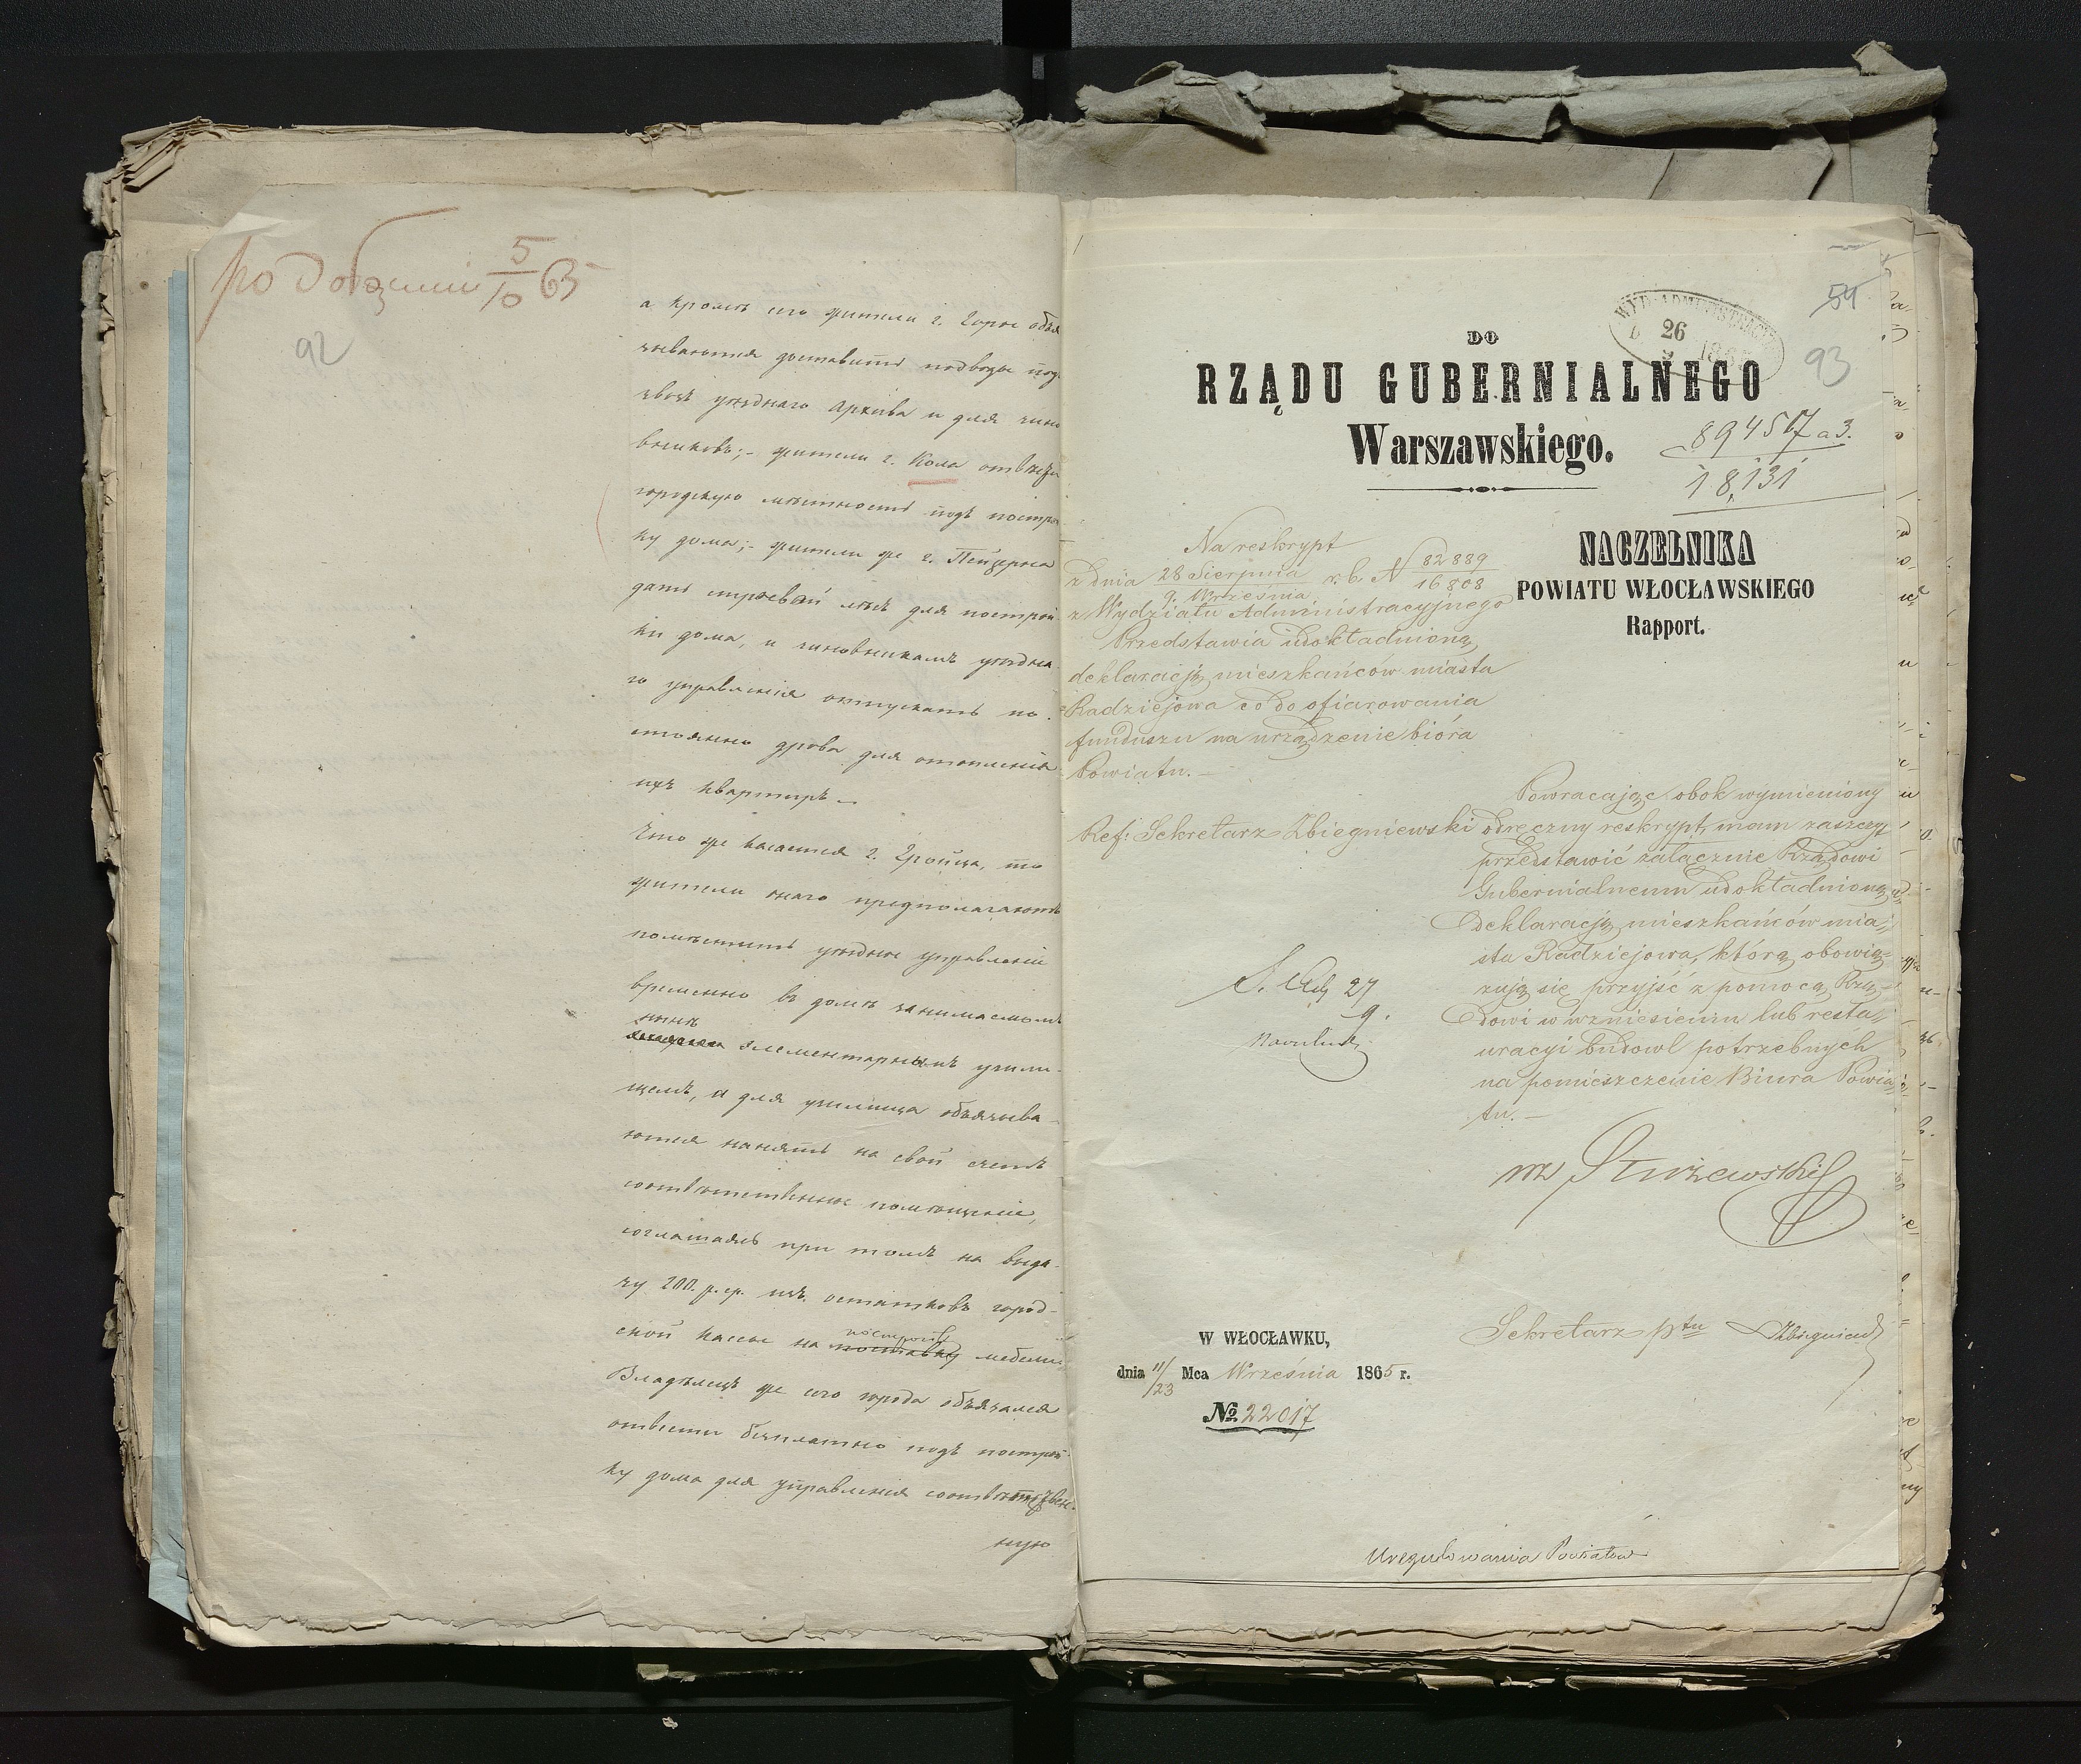 5/10 65
92
а кромѣ сего жители г. Горы обя
зываются доставить подводы подъ
свозъ уѣзднаго Архива и для чино
вниковъ;- жители г. Кола отвести
городскую мѣстность подъ построй
ку дома;- жители же г. Пейзерна
дать строевой лѣсъ для построй-
ки дома, и чиновникамъ уѣздна
го управленія отпускать по-
стоянно дрова для отопленія
ихъ квартиръ.-
Что же касается г. Гройца, то
жители онаго предполагаютъ
помѣстить уѣздное управленіе
временно въ домѣ занимаемомъ
нынѣ
элементарнымъ учили-
щемъ, и для училища обязыва-
ются нанять на свой счетъ
соотвѣтственное помѣщеніе,
соглашаясь при томъ на выда-
чу 200. р.ср. изъ остатковъ город-
ской кассы на поставку мебели.
Владѣлецъ же сего города обязался
отвести безплатно подъ построй-
ку дома для управленія соотвѣтствен-
ную
54
93
WYD. ADMINISTRACYI
D 26
9 186
DO
RZĄDU GUBERNIALNEGO
Warszawskiego.
89457 a 3.
18,131
NACZELNIKA
POWIATU WŁOCŁAWSKIEGO
Rapport.
Na reskrypt
z dnia 28 Sierpnia / 9. Września r. b. N 82889 / 16808
z Wydziału Administracyjnego
Przedstawia udokładnioną
deklaracją mieszkańców miasta
Radziejowa co do ofiarowania
funduszu na urządzenie bióra
Powiatu.-
Ref: Sekretarz Zbiegniewski
Powracając obok wymieniony
odręczny reskrypt, mam zaszczyt
przedstawić załącznie Rządowi
Gubernialnemu udokładnioną
deklaracją mieszkańców mia„
sta Radziejowa, którą obowią=
zują się przyjść z pomocą Rzą„
dowi w wzniesieniu lub resta„
uracyi budowl potrzebnych
na pomieszczenie Biura Powia„
tu.-
27
9.
Sekretarz ptu Zbiegniewski
W WŁOCŁAWKU,
dnia 11/23 Mca Września 1865 r.
№ 22017
Uregulowania Powiatów